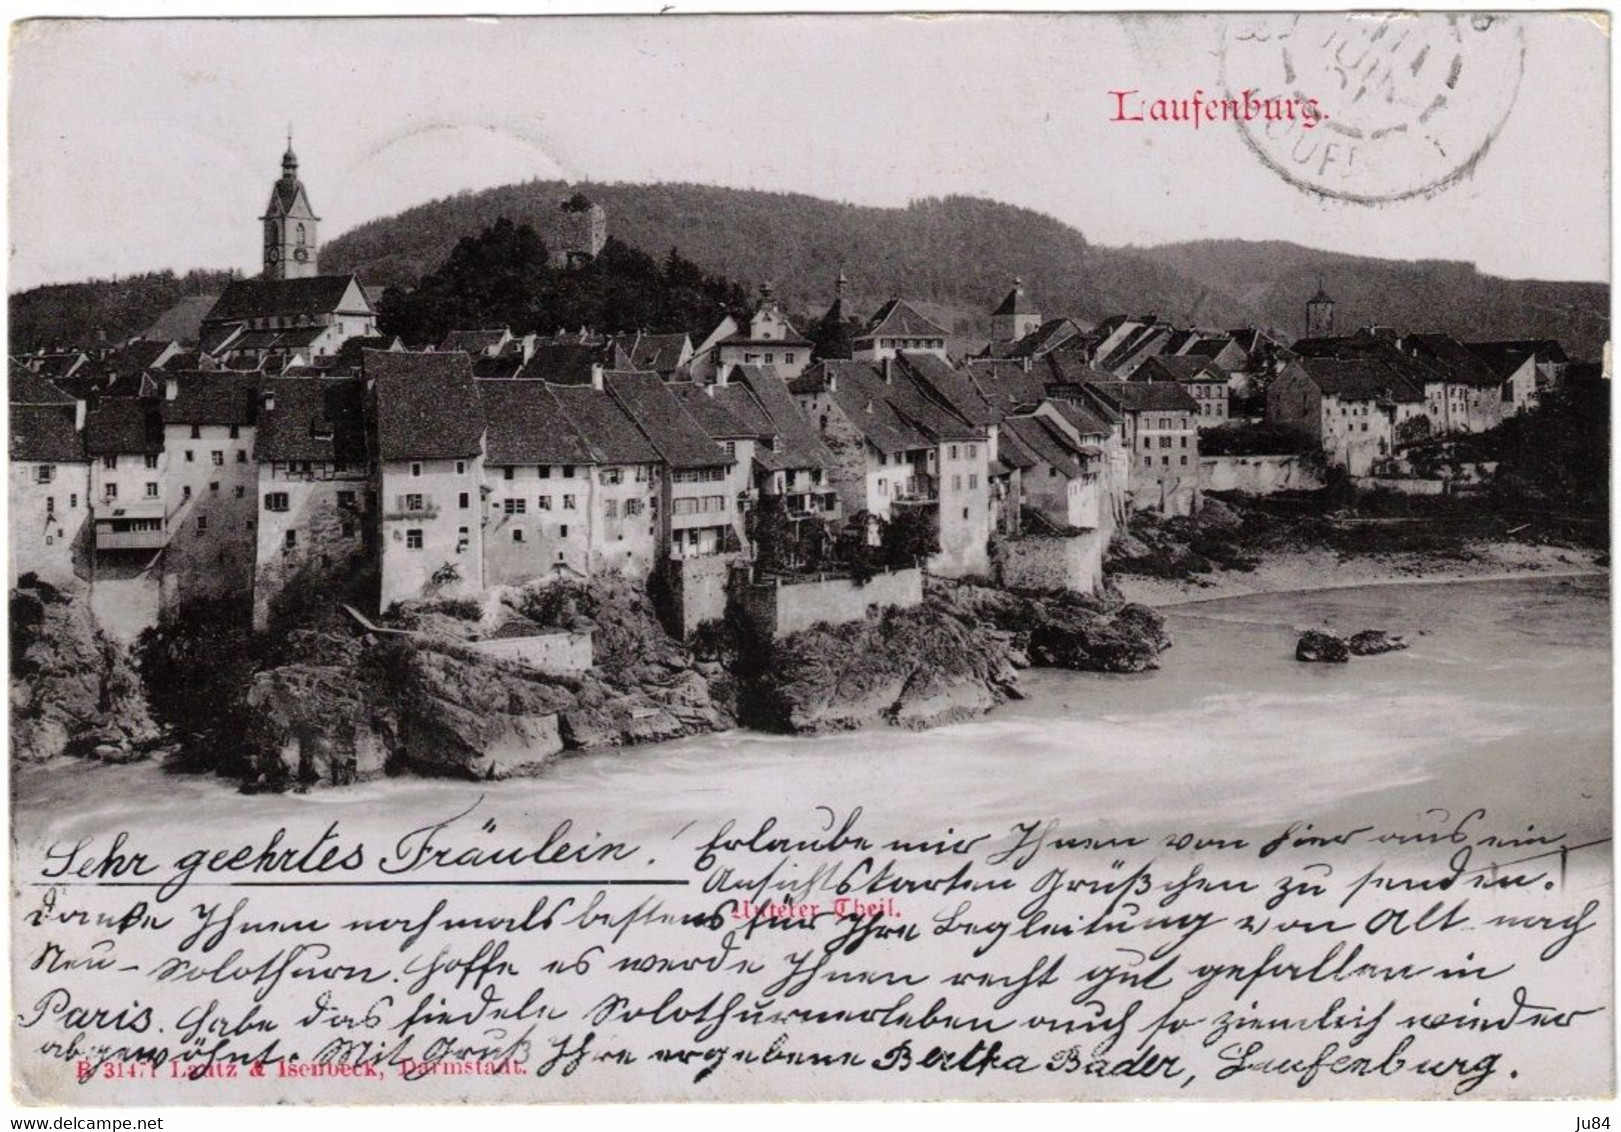 Laufenburg.
Sehr geehrtes Fräulein! Erlaube mir Ihnen von hier aus ein
Ansichtskarten Grüßchen zu senden.
Unterer Theil.
Danke Ihnen nochmals bestens für Ihre Begleitung von Alt nach
Neu-Solothurn. Hoffe es werde Ihnen recht gut gefallen in
Paris. Habe das fiedele Solothurnerleben auch so ziemlich wieder
abgewöhnt. Mit Gruß Ihre ergebene Bertha Bader, Laufenburg.
31471 Lautz & Isenbeck, Darmstadt.
Ju84